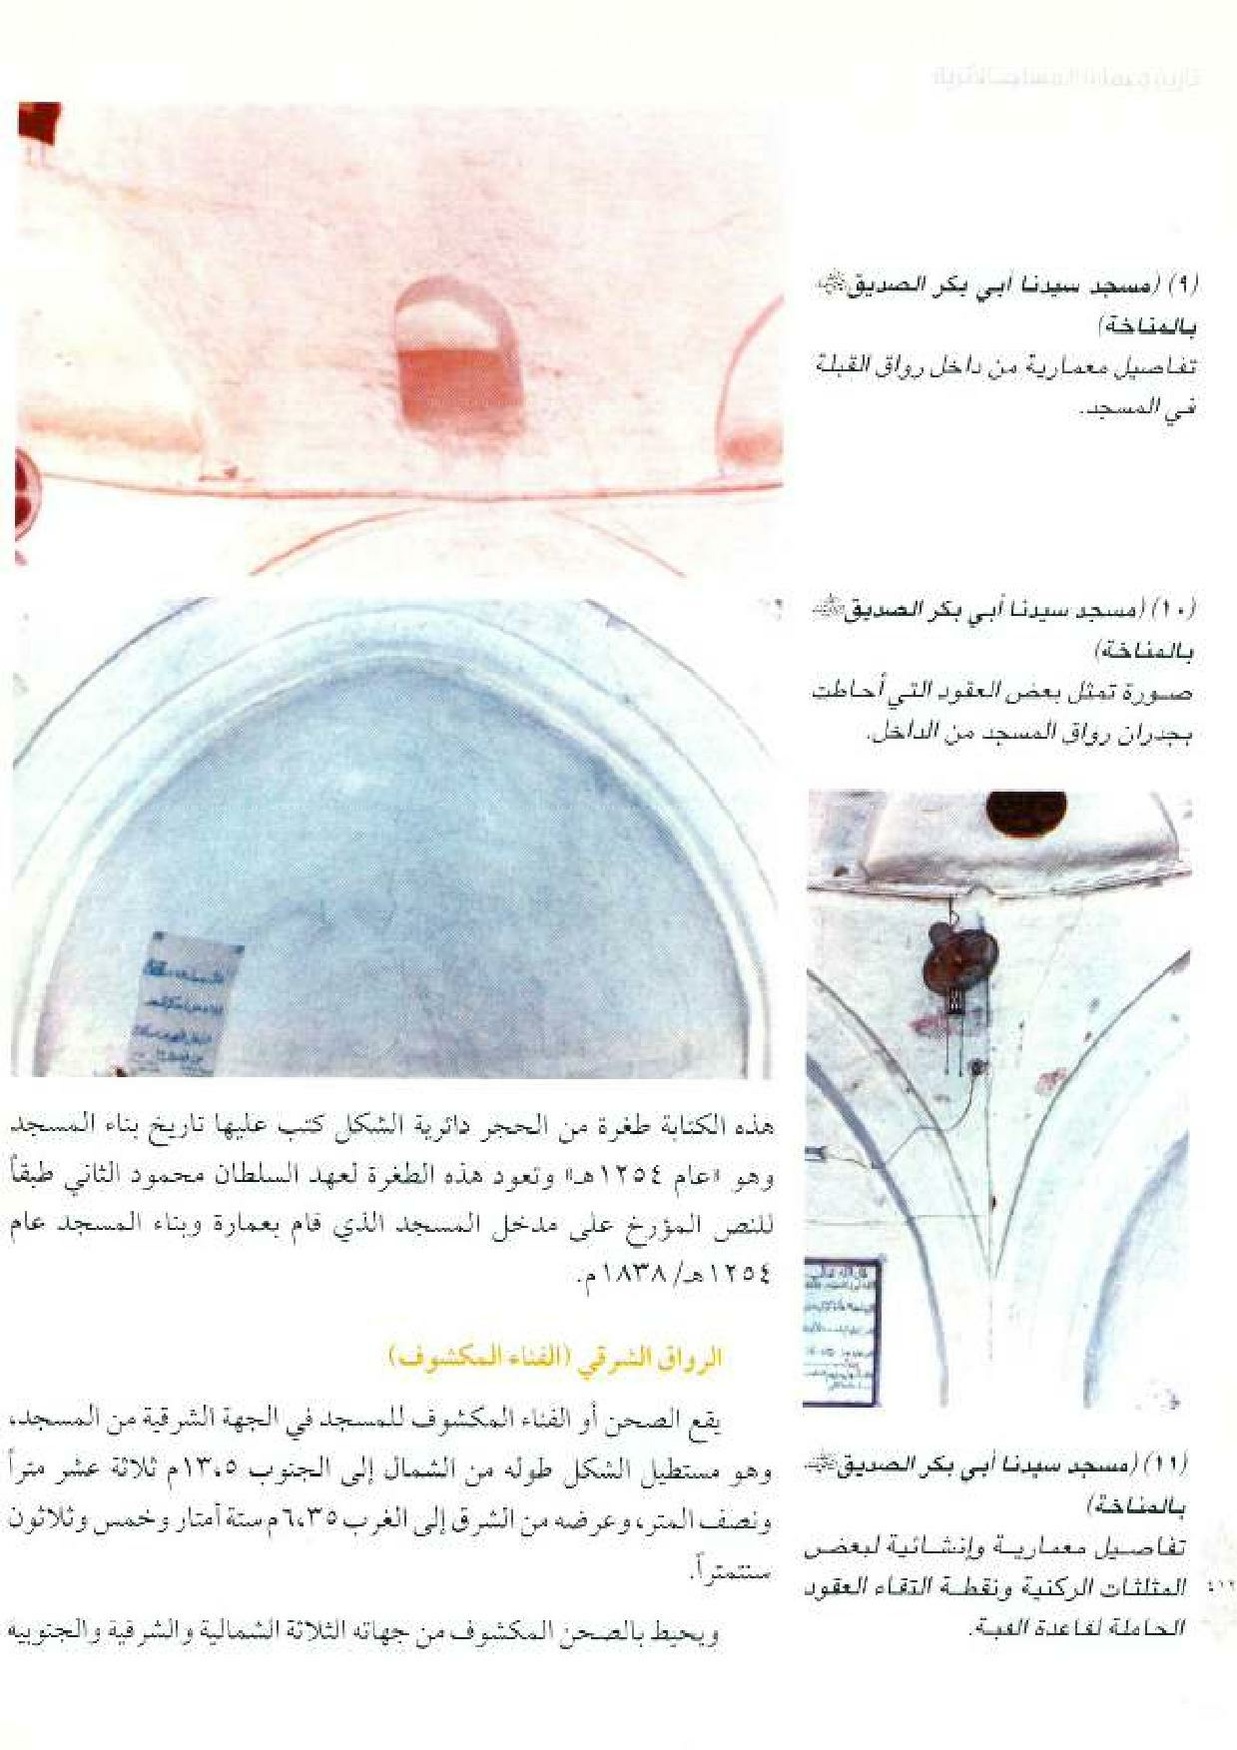 (٩) (مسجد سيدنا أبي بكر الصديق ﷺ
بالمناخة)
تفاصيل معمارية من داخل رواق القبلة
في المسجد.
(١٠) (مسجد سيدنا أبي بكر الصديق ﷺ
بالمناخة)
صورة تمثل بعض العقود التي أحاطت
بجدران رواق المسجد من الداخل.
(١١) (مسجد سيدنا أبي بكر الصديق ﷺ
بالمناخة)
تفاصيل معمارية وإنشائية لبعض
المثلثات الركنية ونقطة التقاء العقود
الحاملة لقاعدة القبة.
هذه الكتابة طغرة من الحجر دائرية الشكل كتب عليها تاريخ بناء المسجد
وهو «عام ١٢٥٤هـ» وتعود هذه الطغرة لعهد السلطان محمود الثاني طبقاً
للنص المؤرخ على مدخل المسجد الذي قام بعمارة وبناء المسجد عام
١٢٥٤هـ/١٨٣٨م.
الرواق الشرقي (الفناء المكشوف)
يقع الصحن أو الفناء المكشوف للمسجد في الجهة الشرقية من المسجد،
وهو مستطيل الشكل طوله من الشمال إلى الجنوب ١٣،٥م ثلاثة عشر متراً
ونصف المتر، وعرضه من الشرق إلى الغرب ٦،٣٥م ستة أمتار وخمس وثلاثون
سنتمتراً.
ويحيط بالصحن المكشوف من جهاته الثلاثة الشمالية والشرقية والجنوبية